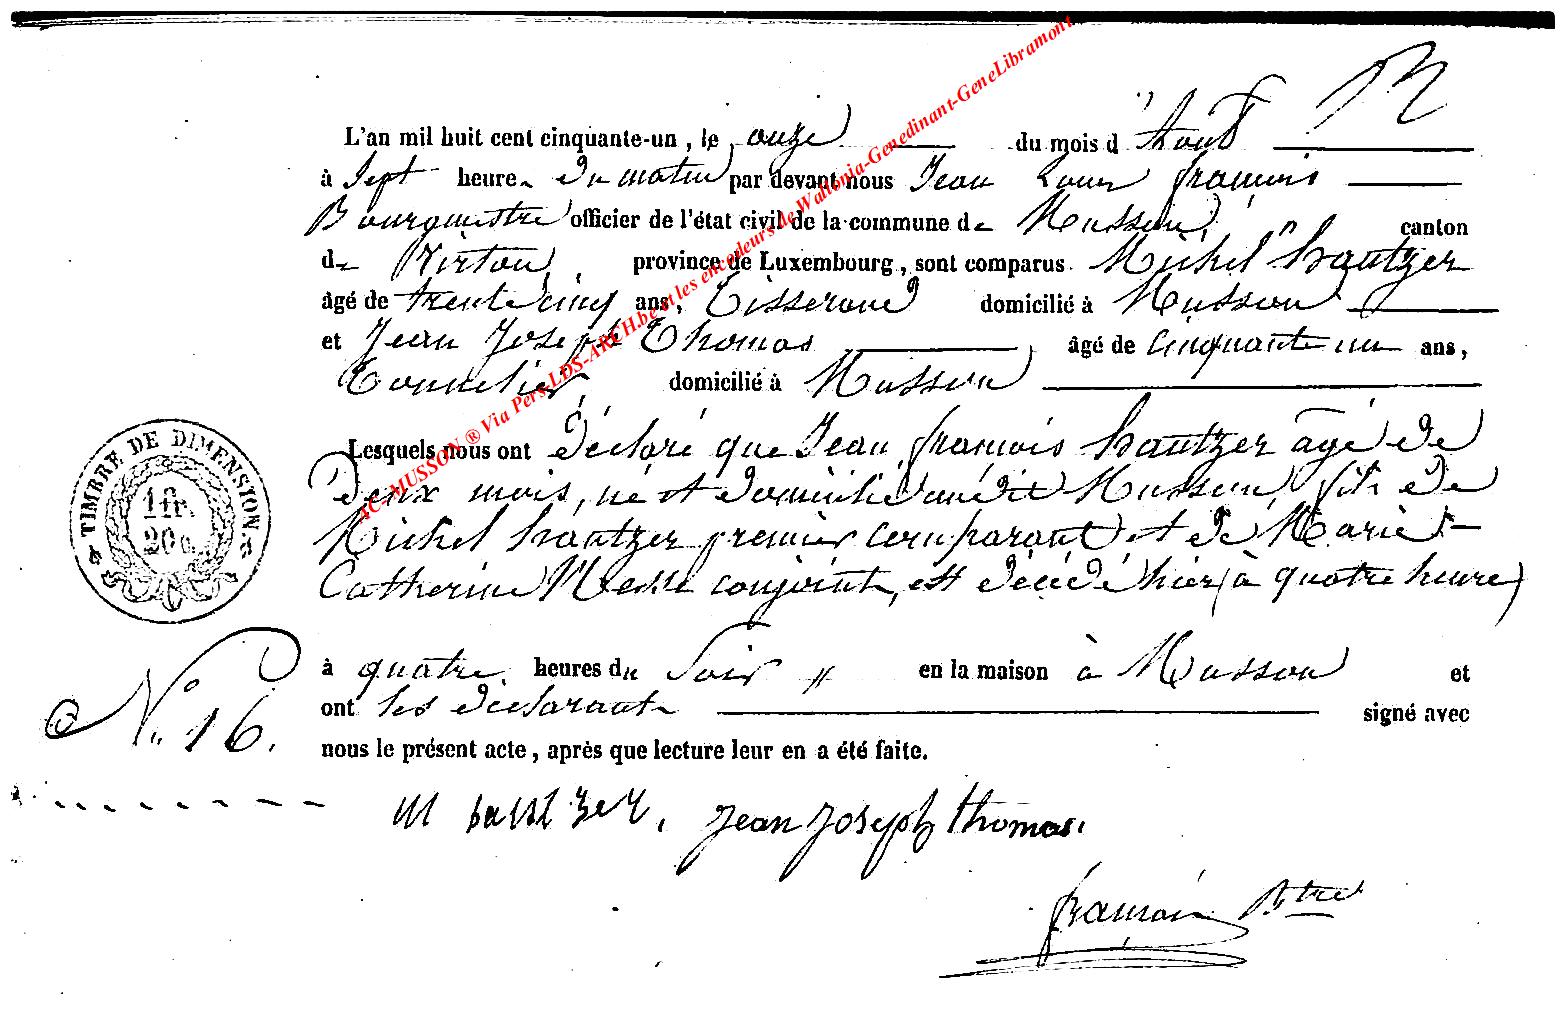 L'an mil huit cent cinquante-un, le onze du mois d'Août
à Sept heures du matin par devant nous Jean Louis françois
Bourgmestre officier de l'état civil de la commune de Musson, canton
de Virton, province de Luxembourg, sont comparus Michel hautzer
âgé de trente cinq ans, Tisserand domicilié à Musson
et Jean Joseph Thomas âgé de cinquante un ans,
Tonnelier, domicilié à Musson
Lesquels nous ont déclaré que Jean françois hautzer âgé de
deux mois, né et domicilié audit Musson, fils de
Michel hautzer premier comparant et de Marie
Catherine conjoints, est décédé hier (à quatre heure)
à quatre heures du Soir " en la maison à Musson et
ont les déclarants signé avec
nous le présent acte, après que lecture leur en a été faite.
TIMBRE DE DIMENSION
1 fr.
20 c.
N° 16.
M hautzer. Jean Joseph thomas.
françois Bstre
AC-MUSSON ® Via Pers-LDS-ARCH.be et les encodeurs de Wallonia-Genedinant-GeneLibramont